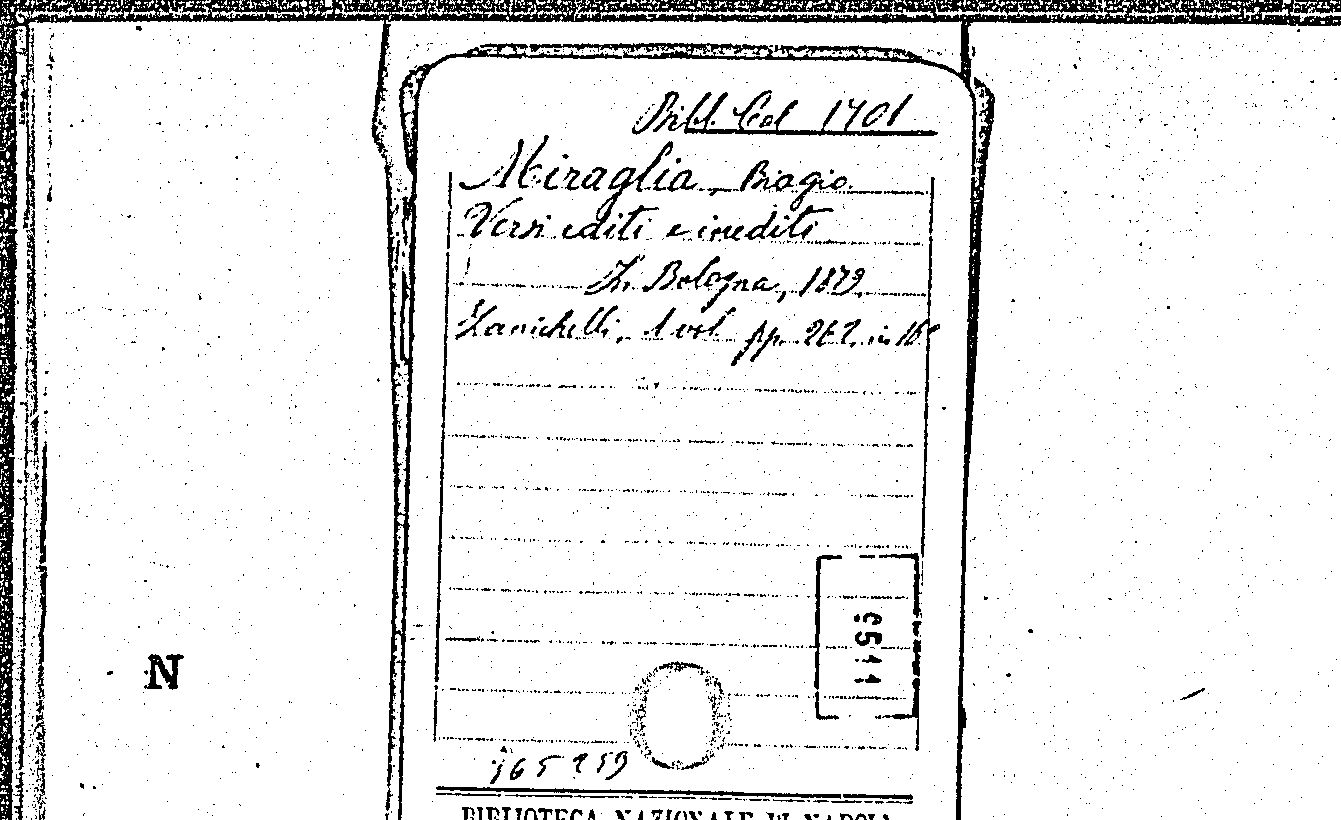 Bibl. Cal 1701
Miraglia, Biagio
Versi editi e inediti
Bologna, 1879
Zanichelli, 1 vol. pp. 262. in 16°
6511
N
BIBLIOTECA NAZIONALE DI NAPOLI